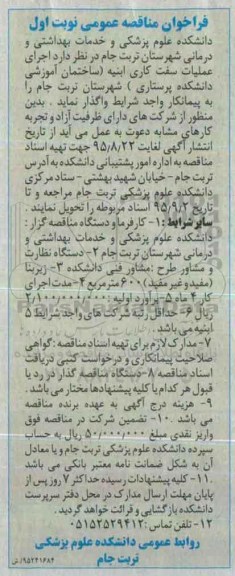 فراخوان مناقصه عمومی نوبت اول
دانشکده علوم پزشکی و خدمات بهداشتی و
درمانی شهرستان تربت جام در نظر دارد اجرای
عملیات سفت کاری ابنیه (ساختمان آموزشی
دانشکده پرستاری ) شهرستان تربت جام را
به پیمانکار واجد شرایط واگذار نماید . بدین
منظور از شرکت های دارای ظرفیت آزاد و تجربه
کارهای مشابه دعوت به عمل می آید از تاریخ
انتشار آگهی لغایت ۹۵/۸/۲۲ جهت تهیه اسناد
مناقصه به اداره امور پشتیبانی دانشکده به آدرس
تربت جام - خیابان شهید بهشتی - ستاد مرکزی
دانشکده علوم پزشکی تربت جام مراجعه و تا
تاریخ ۹۵/۹/۲ اسناد مربوطه را تحویل نمایند .
سایر شرایط :۱- کارفرما و دستگاه مناقصه گزار :
دانشکده علوم پزشکی و خدمات بهداشتی و
درمانی شهرستان تربت جام ۲- دستگاه نظارت
و مشاور طرح :مشاور فنی دانشکده ۳- زیربنا
(مفید و غیر مفید) ۶۰۰ مترمربع ۴-مدت اجرای
کار ۴ ماه ۵-برآورد اولیه :۲/۱۰۰/۰۰۰/۰۰۰
ریال ۶- حداقل رتبه شرکت های واجد شرایط ۵
ابنیه می باشد .
۷- مدارک لازم برای تهیه اسناد مناقصه :گواهی
صلاحیت پیمانکاری و درخواست کتبی دریافت
اسناد مناقصه ۸-دستگاه مناقصه گذار در رد یا
قبول هر کدام یا کلیه پیشنهادها مختار می باشد .
۹- هزینه درج آگهی به عهده برنده مناقصه
می باشد .۱۰- تضمین شرکت در مناقصه فوق
واریز نقدی مبلغ ۵۰/۰۰۰/۰۰۰ ریال به حساب
سپرده دانشکده علوم پزشکی تربت جام و یا معادل
آن به شکل ضمانت نامه معتبر بانکی می باشد
.۱۱- کلیه پیشنهادات رسیده حداکثر ۷ روز پس از
پایان مهلت ارسال مدارک در محل دفتر سرپرست
دانشکده بازگشایی و قرائت خواهد گردید.
۱۲- تلفن تماس :۰۵۱۵۲۵۲۹۴۱۲
روابط عمومی دانشکده علوم پزشکی
تربت جام
۹۵۲۴۱۶۸۴/ش